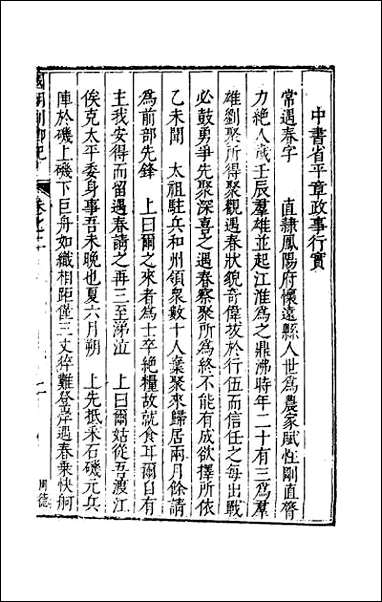 中書省平章政事行實
常遇春字　直隸鳳陽府懷遠縣人世為農家賦性剛直膂
力絕人歲壬辰羣雄並起江淮為之鼎沸時年二十有三為羣
雄劉聚所得聚觀遇春狀貌奇偉拔於行伍而信任之每出戰
必鼓勇爭先聚深喜之遇春察聚所為終不能有成欲擇所依
乙未聞　太祖駐兵和州領衆數十人棄聚來歸居兩月餘請
為前部先鋒　上曰爾之來者為士卒絕糧故就食耳爾自有
主我安得而留遇春請之再三至涕泣　上曰爾姑從吾渡江
俟克太平委身事吾未晚也夏六月朔　上先抵采石磯元兵
陣於磯上磯下巨舟如織相距僅三丈猝難登岸遇春乘快舸
周德